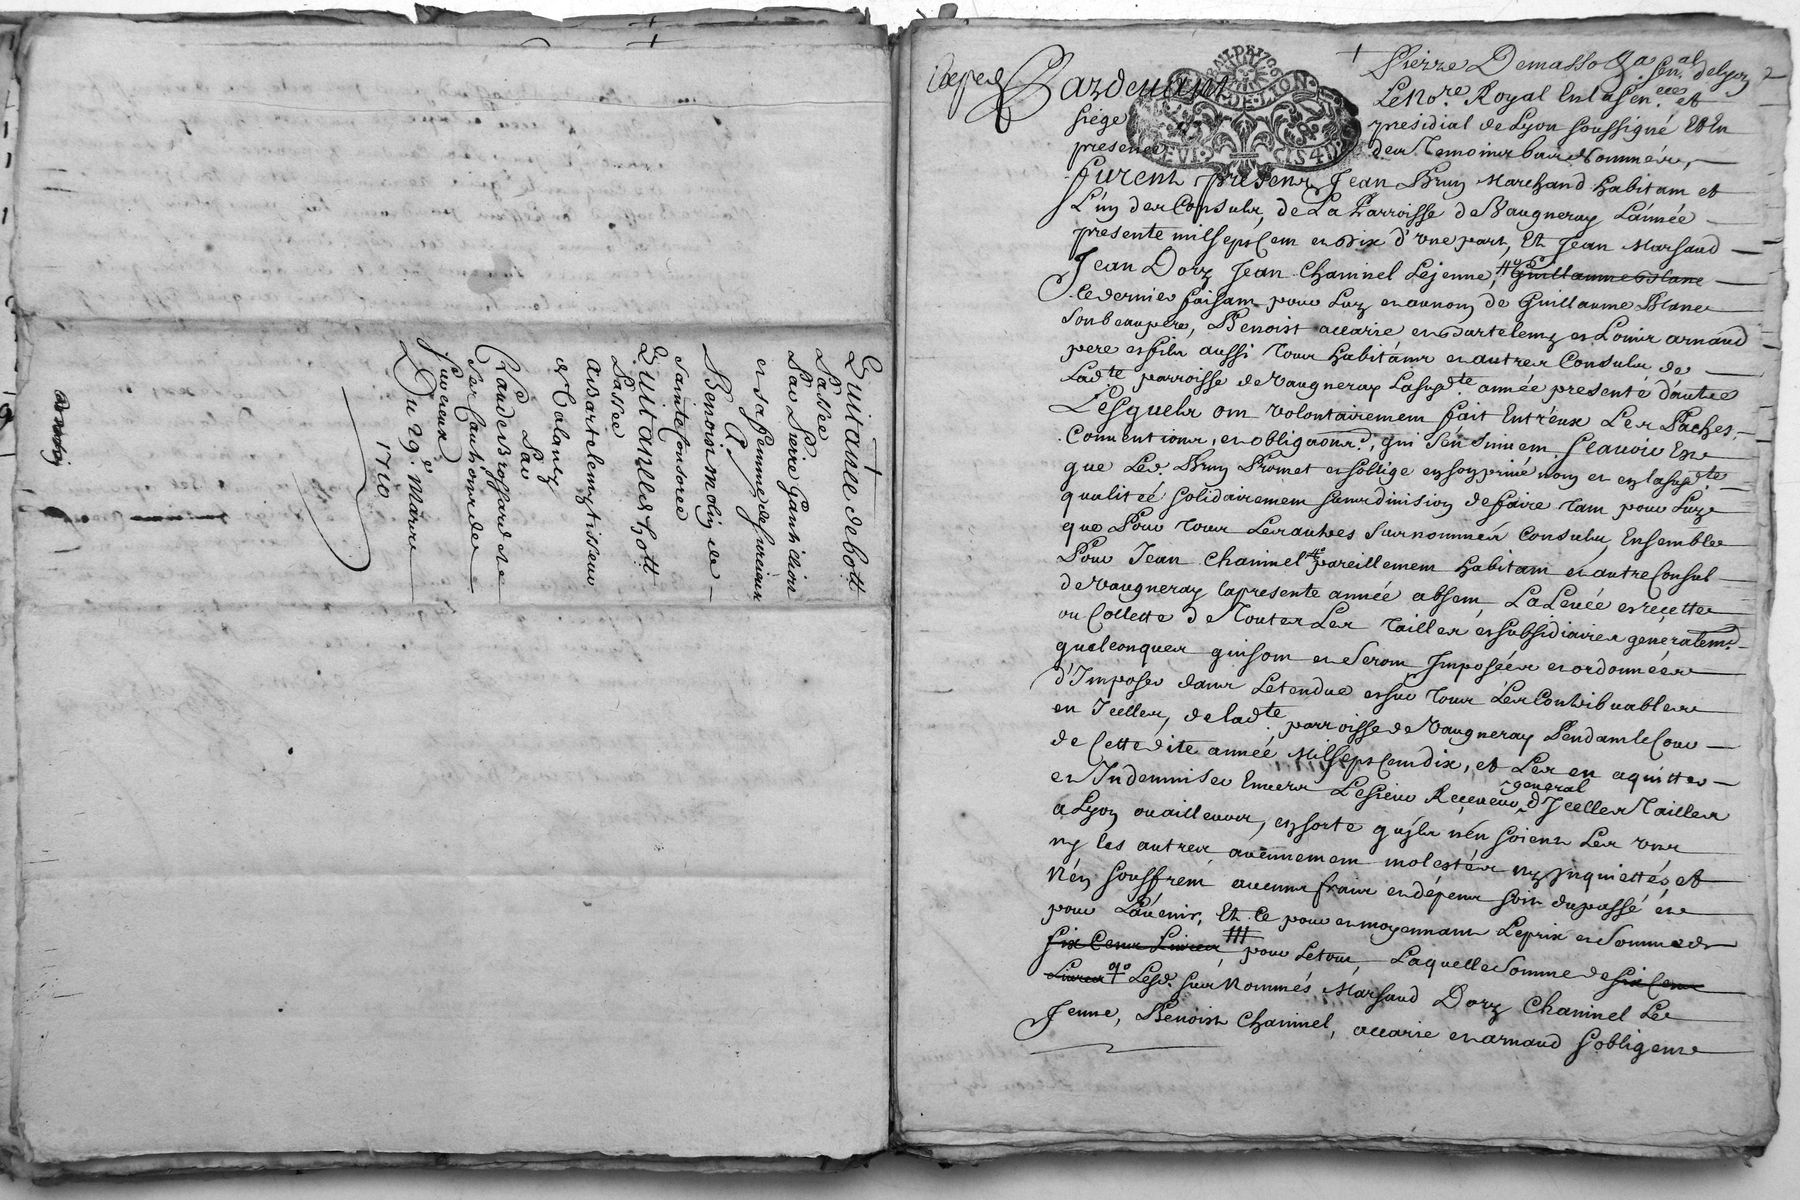 Quittance de dott
Passée
Par Pierre Ganthillion
et sa femme de Lucieux
A
Benoist molin de
Sainte Consorce
Quittance de dott
Passée
a Bartelemy tisseur
de Calouy
Par
Claude Brossard et
Ses Cautions de
Lucieux
Du 29e. Mars
1710
Pardevant Pierre Demasso
Le Nore. Royal En la Senécée. et
siége présidial de Lyon soussigné Et En
presence des Temoins bas Nommés,
furent présens Jean Brun Marchand habitant et
L'un des Consuls, de La Parroisse de Vaugneray L'année
presente mil sept Cent et Dix d'une part, Et Jean Marsaud
Jean Dory Jean Chaninel Lejeune, Guillaume Blanc
Ce dernier faisant pour Luy et au nom de Guillaume Blanc
Son beaupere, Benoist accarie et Bartelemy et Loüis arnaud
pere et fils aussi Tous habitáns et autres Consuls de
Ladte parroisse de Vaugneray Lasusdte année presenté d'autre
Lesquels ont volontairement fait Entréux Les Paches,
Conventions, et obligaons. qui s'en suivent, Sçavoir Est
que Led. Brun Promet et s'oblige en son privé nom et en lasusdte
qualiteé solidairement sans division de faire tant pour Luy
que Pour tous Les autres Surnommés Consuls, Ensemble
Pour Jean Chaninel pareillement habitant et autre Consul
de Vaugneray la presente année absent, La Levée et recette
ou Collette de Toutes Les Tailles et subsidiaires generalemt.
quelconques qui sont et Seront Imposées et ordonnées
d'Imposer dans L'etendue et sur tous Les Contribuables
en Icelles, de ladte parroisse de Vaugneray Pendant le Cours
de Cette dite année Mil sept Cent dix, et Les en aquitter
et Indemniser Envers Le Sieur Receveur general d'Icelles Tailles
a Lyon ou ailleurs, en sorte qu'jls n'en soient Les uns
ny les autres aucunement molestés ny Inquiettés, et
n'en souffrent aucuns frais et dépens soit du passé et
pour L'avenir, Et Ce pour et moyennant Le prix et Somme de
Six Cens Livres pour Le tout, Laquelle Somme de Six Cens
Livres Lesd. sus Nommés Marsaud Dory Chaninel Le
Jeune, Benoist Chaninel, accarie et arnaud s'obligent